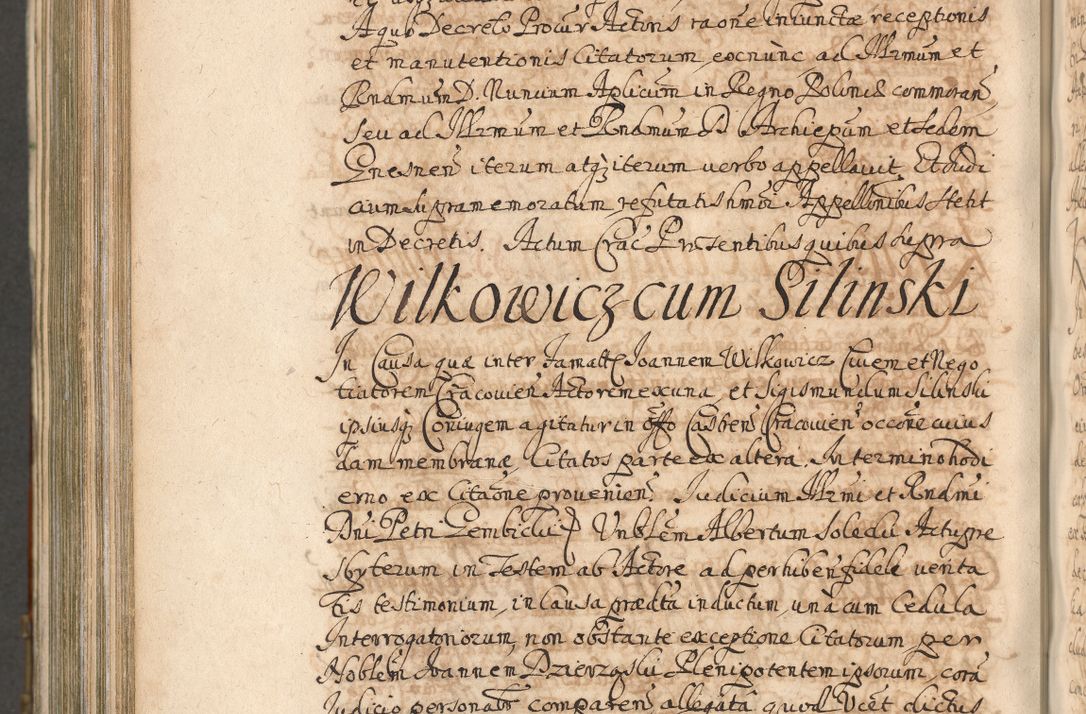 A quo Decreto Procur Actoris raone iniunctæ receptionis
et manutentionis Citatorum, exnunc ad Illrmum et
Rndmum D. Nuncium Aplicum in Regno Poloniæ commoran̄
seu ad Illrmum et Rndmum D Archiepum et sedem
Gnesnen̄ iterum atq iterum verbo appellavit. Et Iudi
cium supramemoratum, refutatis hmoi Appellonibus stetit
in Decretis. Actum Crac Præsentibus quibus supra
Wilkowicz cum Silinski
In Causa quæ inter Famatt Joannem Wilkowicz Civem et Nego
tiatorem Cracovien̄ Actorem ex una, et Sigismundum Silinski
ipsiusq Coniugem agitatur in Offo Castren̄ Cracovien̄ occone cuius
dam membranæ, Citatos parte ex altera. In termino hodi
erno ex Citaone provenien̄ Iudicium Illrmi et Rndmi
Dni Petri Gembicki Unblem Albertum Solecki Actu pre
sbyterum in Testem ab Actore ad perhiben̄ fidele verita
tis testimonium, in Causa prædta inductum, una cum Cedula
Interrogatoriorum, non obstante exceptione Citatorum per
Noblem Joannem Dzierzgski Plenipotentem ipsorum, corā
Iudicio personatr comparen̄ allegata, quod Vcet dictus